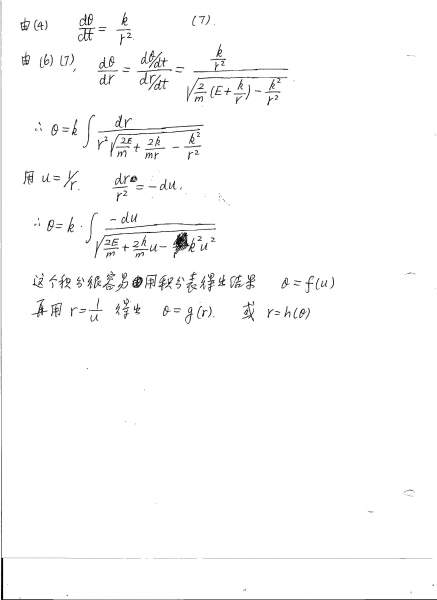 由(4) dθ/dt = k/r². (7).
由 (6) (7), dθ/dr = (dθ/dt)/(dr/dt) = (k/r²)/√(2/m (E + k/r) - k²/r²)
∴ θ = k ∫ dr/(r²√(2E/m + 2k/mr - k²/r²))
用 u = 1/r. dr/r² = -du.
∴ θ = k · ∫ -du/√(2E/m + 2k/m u - k²u²)
这个积分很容易用积分表得出结果 θ = f(u)
再用 r = 1/u 得出 θ = g(r). 或 r = h(θ)